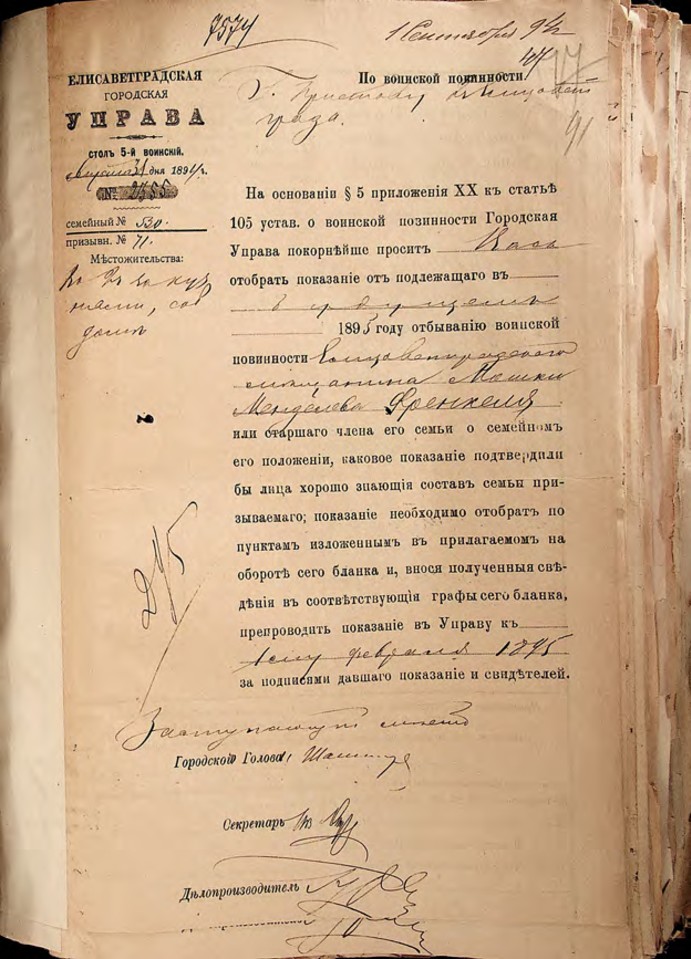 7574
1 Сентября 94
ЕЛИСАВЕТГРАДСКАЯ
ГОРОДСКАЯ
УПРАВА
СТОЛЪ 5-й ВОИНСКІЙ.
дня 1894 г.
№ 2355
семейный № 530.
призывн. № 71.
Мѣстожительства:
По воинской позинности
Г. Приставу
града.
91
На основаніи § 5 приложенія XX къ статьѣ
105 устав. о воинской позинности Городская
Управа покорнѣйше проситъ Васъ
отобрать показаніе отъ подлежащаго въ
будущемъ
1895 году отбыванію воинской
повинности Елисаветградскаго
мѣщанина Мошки
Менделева Френкеля
или старшаго члена его семьи о семейномъ
его положеніи, каковое показаніе подтвердили
бы лица хорошо знающія составъ семьи при-
зываемаго; показаніе необходимо отобрать по
пунктамъ изложеннымъ въ прилагаемомъ на
оборотѣ сего бланка и, внося полученныя свѣ-
дѣнія въ соотвѣтствующія графы сего бланка,
препроводить показаніе въ Управу къ
1895
за подписями давшаго показаніе и свидѣтелей.
245
Заступающій мѣсто
Городского Головы
Секретарь
Дѣлопроизводитель